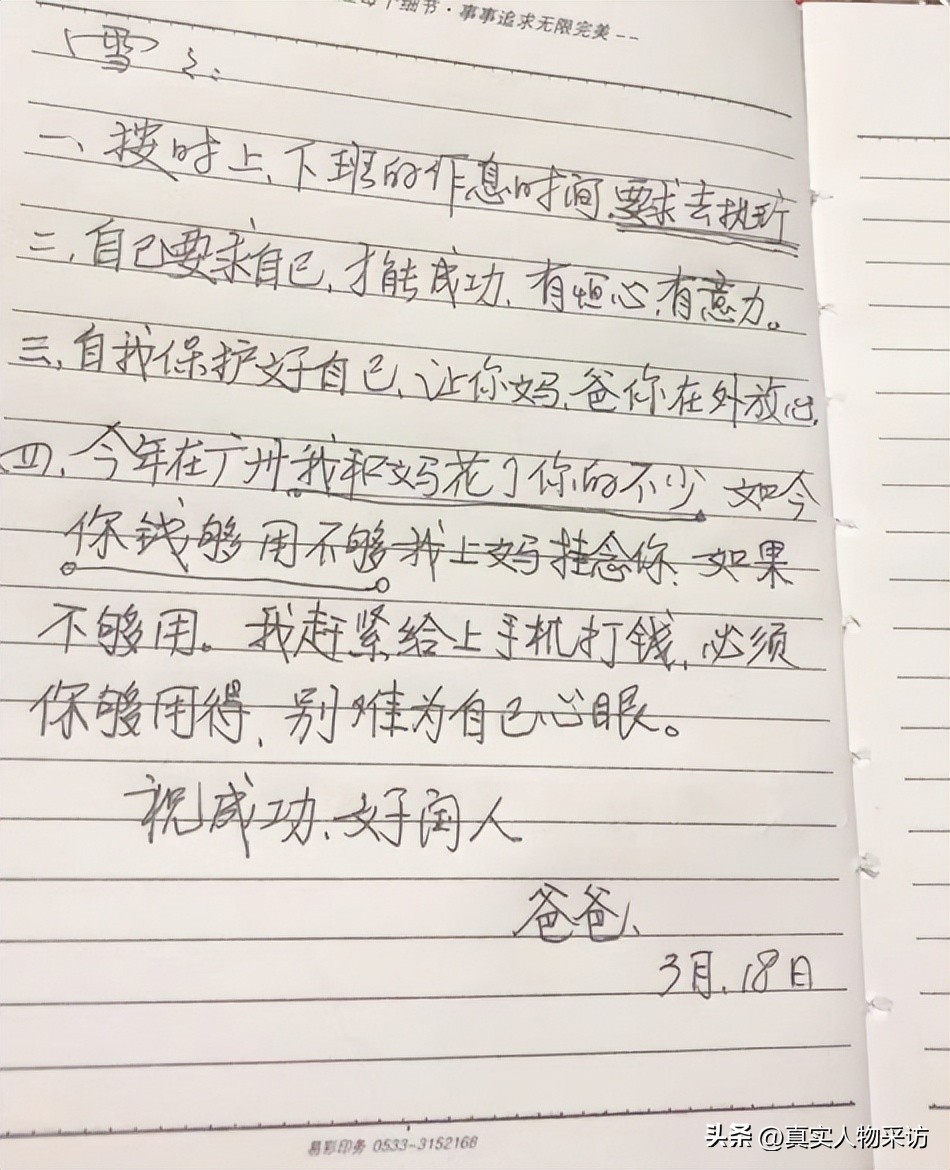 个细节·事事追求无限完美--
雪
一、按时上、下班的作息时间要求去执行
二、自己要求自己、才能成功、有恒心、有意力。
三、自我保护好自己、让你妈、爸你在外放心、
四、今年在广州我和妈花了你的不少 如今
你钱够用不够我上妈挂念你、如果
不够用。我赶紧给上手机打钱、必须
你够用得、别难为自己心眼。
祝成功、好闺人
爸爸、
3月、18日
易彩印务 0533-3152168
头条 @真实人物采访